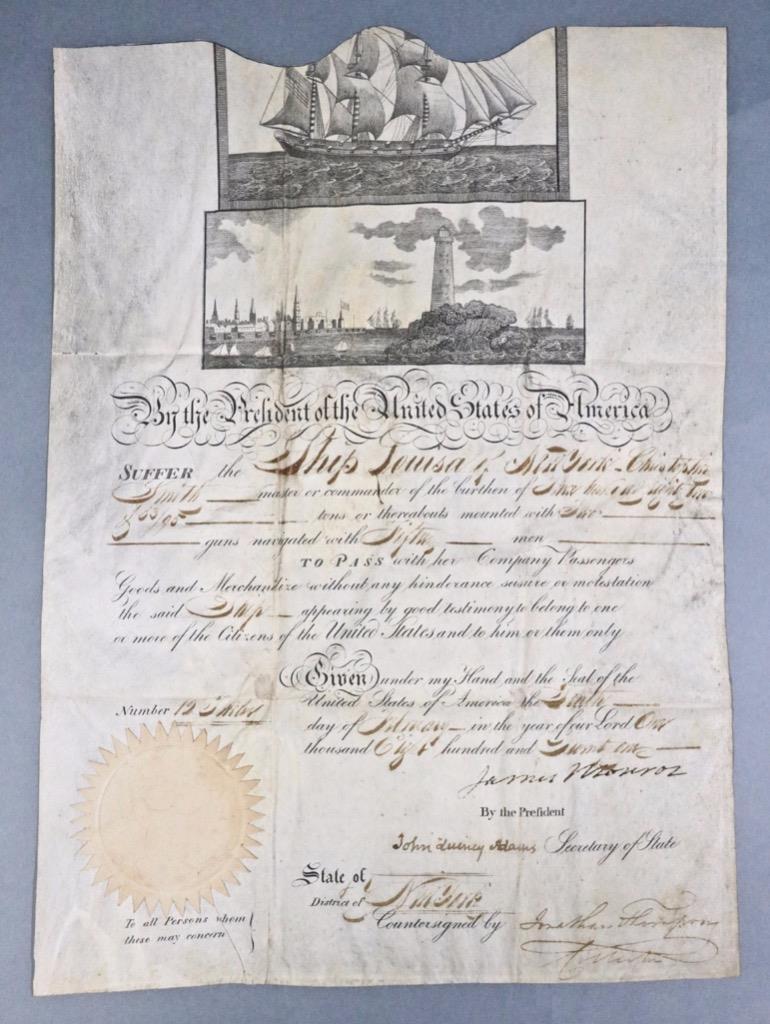 By the President of the United States of America
SUFFER the Ship Louisa of New York Christopher
Smith master or commander of the burthen of
95 tons or thereabouts mounted with
guns navigated with men
TO PASS with her Company Passengers
Goods and Merchandize without any hinderance seisure or molestation
the said Ship appearing by good testimony to belong to one
or more of the Citizens of the United States and to him or them only
Given under my Hand and the Seal of the
United States of America the
Number 12
day of February in the year of our Lord One
thousand Eight hundred and Twenty one
James Monroe
By the President
John Quincy Adams Secretary of State
State of
District of New York
To all Persons whom
these may concern
Countersigned by Jonathan Thompson
Collector